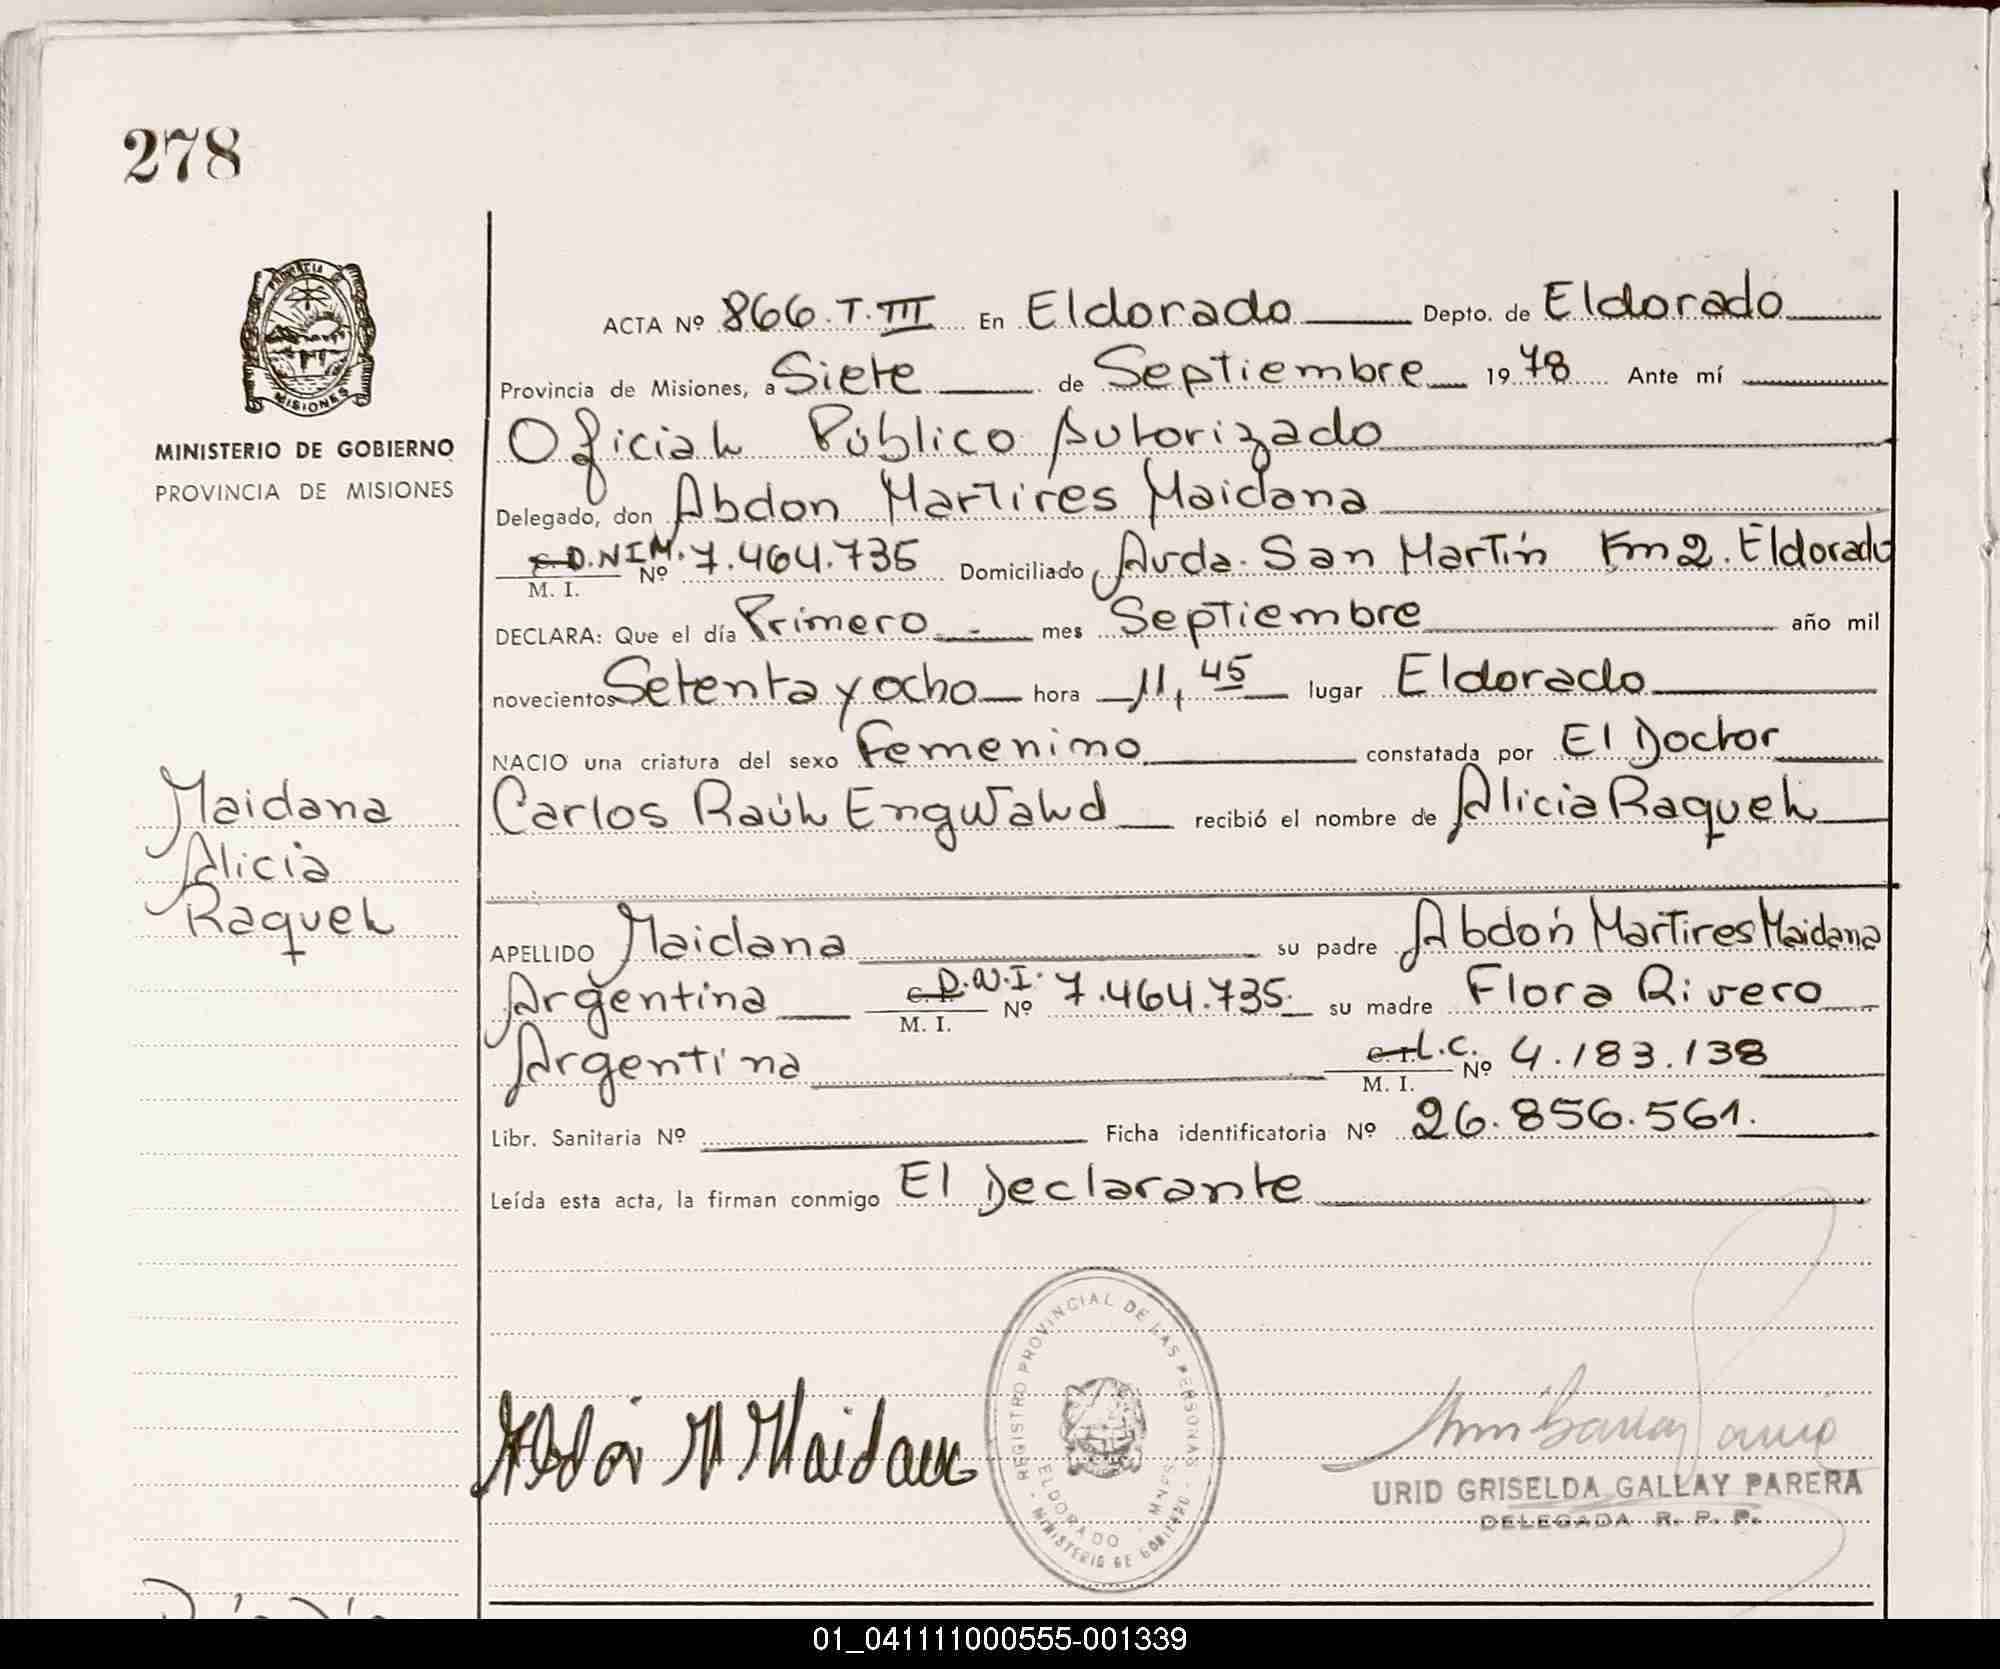 278
PROVINCIA
MISIONES
MINISTERIO DE GOBIERNO
PROVINCIA DE MISIONES
Maidana
Alicia
Raquel
ACTA Nº 866.T.III En Eldorado Depto. de Eldorado
Provincia de Misiones, a Siete de Septiembre 1978 Ante mí
Oficial Público Autorizado
Delegado, don Abdon Martires Maidana
D.N.I.M. Nº 7.464.735 Domiciliado Avda. San Martín Km 2. Eldorado
M. I.
DECLARA: Que el día Primero mes Septiembre año mil
novecientos Setenta y ocho hora 11,45 lugar Eldorado
NACIO una criatura del sexo Femenino constatada por El Doctor
Carlos Raúl Engwald recibió el nombre de Alicia Raquel
APELLIDO Maidana su padre Abdón Martires Maidana
Argentina C.I. D.N.I. Nº 7.464.735. su madre Flora Rivero
M. I.
Argentina C.I. L.C. Nº 4.183.138
M. I.
Libr. Sanitaria Nº Ficha identificatoria Nº 26.856.561.
Leída esta acta, la firman conmigo El Declarante
Abdón M Maidana
REGISTRO PROVINCIAL DE LAS PERSONAS
ELDORADO - MNES.
MINISTERIO DE GOBIERNO
URID GRISELDA GALLAY PARERA
DELEGADA R. P. P.
01_041111000555-001339